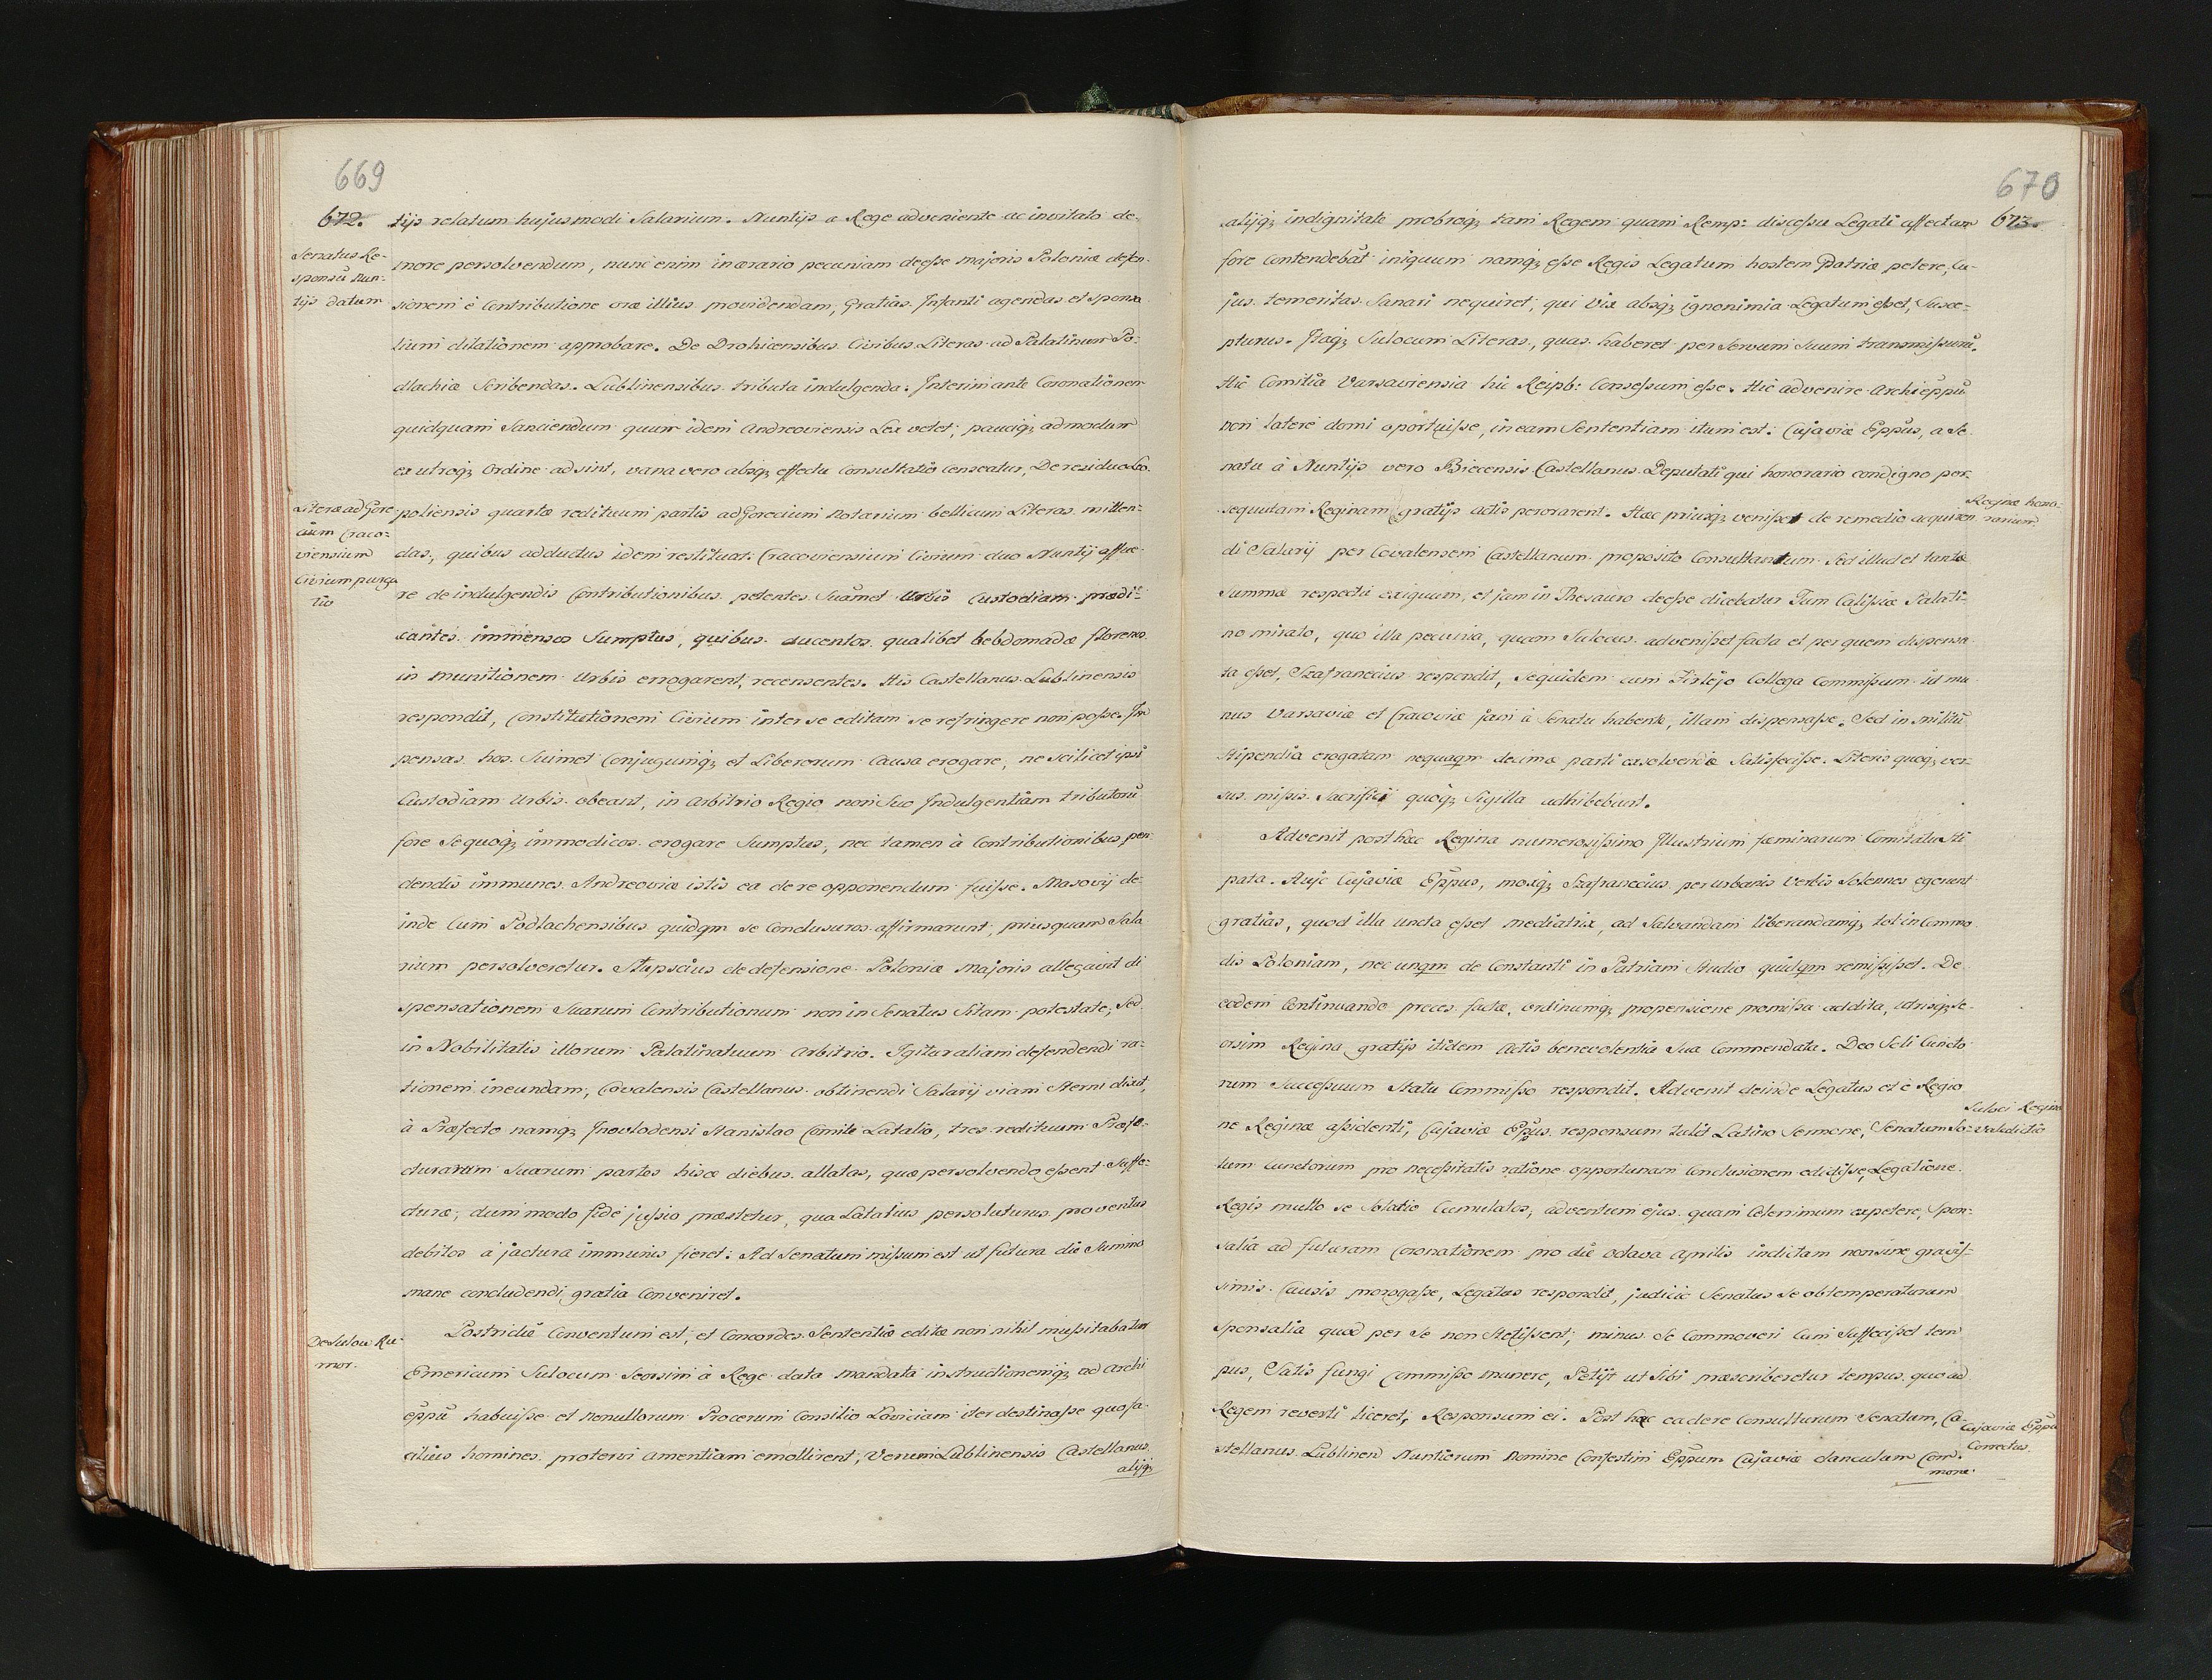 669
672.
tijs relatum hujusmodi Salarium. Nuntijs a Rege adveniente ac invitato de-
Senatus Re-
sponsũ Nun-
tijs datum
more persolvendum, nunc enim in ærario pecuniam deeſse majoris Poloniæ defen-
sionem è Contributione oræ illius providendam, Gratias Infanti agendas et sponsa
lium dilationem approbare. De Drohicensibus Civibus Literas ad Palatinum Po-
dlachiæ Scribendas. Lublinensibus tributa indulgenda. Interim ante Coronationem
quidquam Sanciendum quum idem Andreoviensis Lex vetet; pauciq; admodum
ex utroq; Ordine adsint, vana vero absq; effectu Consultatio censeatur, De residuo Leo-
Literæ ad Gore-
cium Craco-
viensium
Civium purga
tio
poliensis quartæ redituum partis ad Gorecium Notarium bellicum Literas mitten-
das, quibus adductus idem restituat. Cracoviensium Civium duo Nuntij affue-
re de indulgendis Contributionibus petentes Suāmet Urbis Custodiam prædi-
cantes immensos Sumptus, quibus ducentos qualibet hebdomadæ florenos
in munitionem Urbis errogarent, recensentes. His Castellanus Lublinensis
respondit, Constitutionem Civium inter se editam se refringere non poſse. Im
pensas hos Suimet Conjugumq; et Liberorum Causa erogare, ne scilicet ipsi
Custodiam Urbis obeant, in arbitrio Regio non Suo Indulgentiam tributorũ
fore Se quoq; immodicos erogare Sumptus, nec tamen à Contributionibus pen-
dendis immunes. Andreoviæ istis ea de re opponendum fuiſse. Masovij de-
inde Cum Podlachensibus quidqm se Conclusuros affirmarunt, priusquam Sala
rium persolveretur. Stupscius de defensione Poloniæ Majoris allegavit di
spensationem Suarum Contributionum non in Senatus Sitam potestate, Sed
in Nobilitatis illorum Palatinatuum arbitrio. Igitur aliam defendendi ra-
tionem ineundam, Covalensis Castellanus obtinendi Salarij viam Sterni dixit,
à Præfecto namq; Inovlodensi Stanislao Comite Latalio, tres redituum Præfe-
cturarum Suarum partes hisce diebus allatas, quæ persolvendo eſsent Suffe-
cturæ, dummodo fide juſsio præstetur, qua Latalius persoluturus proventus
debitos à jactura immunis fieret: Ad Senatum miſsum est ut futura die Summo
mane concludendi gratia Conveniret.
De Sulou Ru-
mor.
Postridie Conventum est, et Concordes Sententiæ editæ non nihil muſsitabatur
Emericum Sulocum Seorsim à Rege data mandata instructionemq; ad Archi
eppũ habuiſse et Nonullorum Procerum Consilio Loviciam iter destinaſse quo fa-
cilius homines protervi amentiam emollirent, Verum Lublinensis Castellanus
alijq;
670
673.
alijq; indignitate probroq; tam Regem quam Remp: disceſsu Legati affectam
fore Contendebāt iniquum namq; eſse Regis Legatum hostem Patriæ petere, Cu-
jus temeritas Sanari nequiret, qui Vix absq; ignonimia Legatum eſset, Susce-
pturus. Itaq; Sulocum Literas, quas haberet per Servum Suum transmiſsurũ.
Hic Comitia Varsaviensia hic Reipb: Conseſsum eſse. Hic advenire Archieppũ
non latere domi oportuiſse, in eam Sententiam itum est: Cujaviæ Eppus, a Se
natu à Nuntijs vero Biecensis Castellanus Deputati qui honorario condigno per-
Reginæ hono-
rarium.
sequutam Reginam gratijs actis perorarent. Hæc priusq; veniſset de remedio acquiren
di Salarij per Covalensem Castellanum proposito Consultantum. Sed illud et tantæ
Summæ respectu exiguum, et jam in Thesauro deeſse dicebatur Tum Caliſsiæ Palati-
no mirato, quo illa pecunia, quam Sulocus adveniſset facta et per quem dispensa
ta eſset, Szafranecius respondit, Sequidem cum Firlejo Collega Commiſsum id mu
nus Varsaviæ et Cracoviæ jam à Senatu habente, illam dispensaſse. Sed in militũ
Stipendia erogatam nequaqm decimæ parti exsolvendæ Satisfeciſse. Literis quoq; ver-
sus miſsis Sacrificij quoq; Sigilla adhibebunt.
Advenit post hæc Regina numerosiſsimo Illustrium fæminarum Comitatu Sti
pata. Huic Cujaviæ Eppus, moxq; Szafranecius perurbanis Verbis Solennes egerunt
gratias, quod illa uncta eſset mediatrix, ad Salvandam liberandamq; tot inCommo
dis Poloniam, nec unqm de Constanti in Patriam Studio quidqm remiſsiſset. De
eodem Continuando preces factæ, ordinumq; propensione promiſsa addita, utrisq; Se-
orsim Regina gratijs itidem Actis benevolentia Sua Commendata. Deo Soli Cuncto
rum Succeſsuum Statu Commiſso respondit. Advenit deinde Legatus et è Regio
Suloci Reginæ
valedictio
ne Reginæ aſsidenti, Cujaviæ Eppus responsum tulit Latino Sermone, Senatum So-
lum Cunctorum pro neceſsitatis ratione opportunam Conclusionem edidiſse, Legatione
Regis multo se Solatio Cumulatos, adventum ejus quam Celerrimum expetere, Spon-
salia ad futuram Coronationem pro die octava Aprilis indictam non sine graviſ-
simis Causis prorogaſse, Legatus respondit, judicio Senatus se obtemperaturum
Sponsalia quod per se non Stetiſsent; minus Se Commoveri Cum Suffeciſset tem
pus, Satis fungi Commiſso munere, Petijt ut Sibi præscriberetur tempus quo ad
Regem reverti liceret, Responsum ei. Post hæc ea de re Consulturum Senatum, Ca-
Cujaviæ Eppũ
Correctus.
stellanus Lublinen Nuntiorum nomine Confestim Eppum Cujaviæ clanculum Com-
mone-